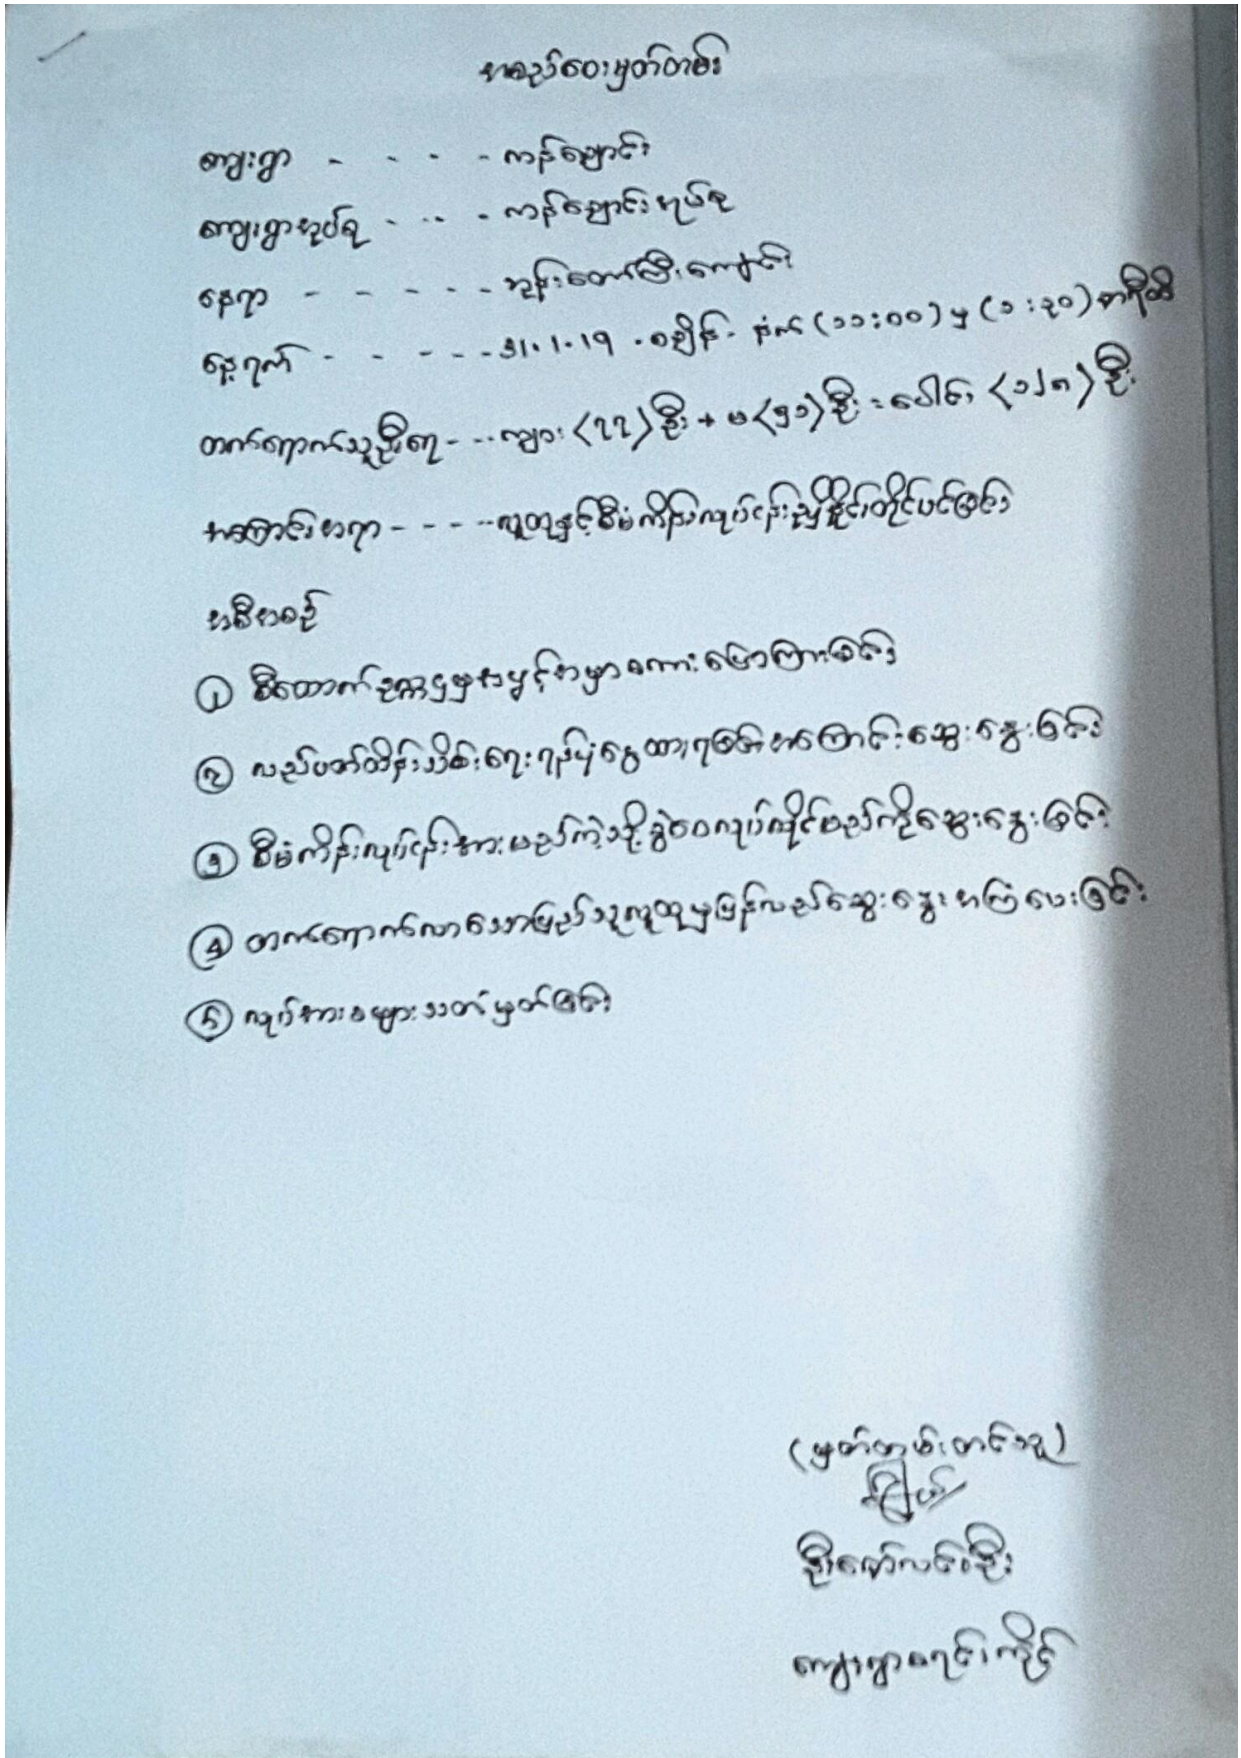 အစည်းဝေးမှတ်တမ်း
ကျေးရွာ - - - - ကန်ချောင်း
ကျေးရွာအုပ်စု - - - - ကန်ချောင်းအုပ်စု
နေရာ - - - - - ဘုန်းတော်ကြီးကျောင်း
နေ့ရက် - - - - - 31.1.19 . အချိန် - နံနက် (၁၁:၀၀) မှ (၁:၃၀) နာရီထိ
တက်ရောက်သူဦးရေ - - - ကျား (၇၇) ဦး + မ (၅၁) ဦး = ပေါင်း (၁၂၈) ဦး
အကြောင်းအရာ - - - - လူထုနှင့်စီမံကိန်းလုပ်ငန်းညှိနှိုင်းတိုင်ပင်ခြင်း
အစီအစဉ်
① စီထောက်ဥက္ကဌမှအဖွင့်အမှာစကားပြောကြားခြင်း
② လည်ပတ်ထိန်းသိမ်းရေးရန်ပုံငွေထားရခြင်းအကြောင်းဆွေးနွေးခြင်း
③ စီမံကိန်းလုပ်ငန်းအားမည်ကဲ့သို့ခွဲဝေလုပ်ကိုင်မည်ကိုဆွေးနွေးခြင်း
④ တက်ရောက်လာသောပြည်သူလူထုမှပြန်လည်ဆွေးနွေးအကြံပေးခြင်း
⑤ လုပ်အားခများသတ်မှတ်ခြင်း
(မှတ်တမ်းတင်သူ)
ဦးဇော်လင်းဦး
ကျေးရွာစရင်းကိုင်